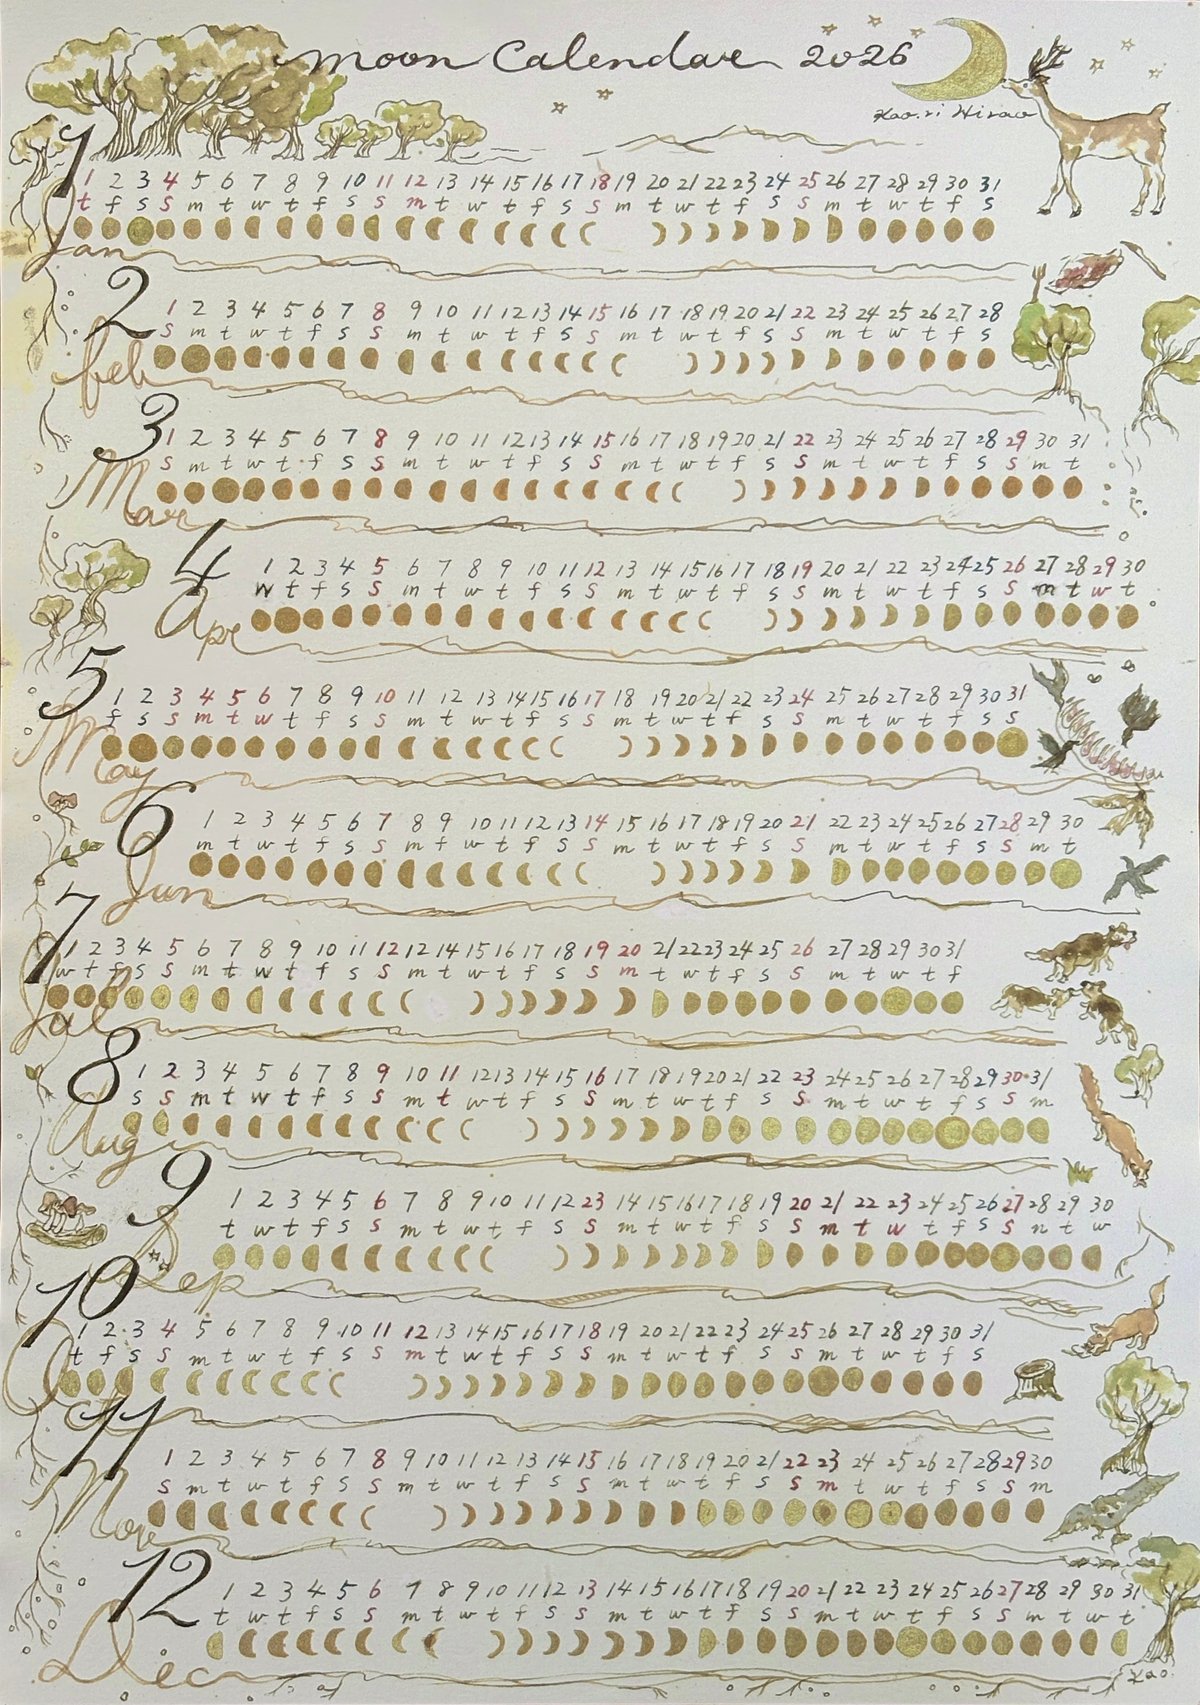 moon Calendar 2026
Kao.ri Hirao
1
1 2 3 4 5 6 7 8 9 10 11 12 13 14 15 16 17 18 19 20 21 22 23 24 25 26 27 28 29 30 31
t f s s m t w t f s s m t w t f s s m t w t f s s m t w t f s
Jan
2
1 2 3 4 5 6 7 8 9 10 11 12 13 14 15 16 17 18 19 20 21 22 23 24 25 26 27 28
s m t w t f s s m t w t f s s m t w t f s s m t w t f s
feb
3
1 2 3 4 5 6 7 8 9 10 11 12 13 14 15 16 17 18 19 20 21 22 23 24 25 26 27 28 29 30 31
s m t w t f s s m t w t f s s m t w t f s s m t w t f s s m t
Mar
4
1 2 3 4 5 6 7 8 9 10 11 12 13 14 15 16 17 18 19 20 21 22 23 24 25 26 27 28 29 30
w t f s s m t w t f s s m t w t f s s m t w t f s s m t w t
Apr
5
1 2 3 4 5 6 7 8 9 10 11 12 13 14 15 16 17 18 19 20 21 22 23 24 25 26 27 28 29 30 31
f s s m t w t f s s m t w t f s s m t w t f s s m t w t f s s
May
6
1 2 3 4 5 6 7 8 9 10 11 12 13 14 15 16 17 18 19 20 21 22 23 24 25 26 27 28 29 30
m t w t f s s m t w t f s s m t w t f s s m t w t f s s m t
Jun
7
1 2 3 4 5 6 7 8 9 10 11 12 12 14 15 16 17 18 19 20 21 22 23 24 25 26 27 28 29 30 31
w t f s s m t w t f s s m t w t f s s m t w t f s s m t w t f
Jul
8
1 2 3 4 5 6 7 8 9 10 11 12 13 14 15 16 17 18 19 20 21 22 23 24 25 26 27 28 29 30 31
s s m t w t f s s m t w t f s s m t w t f s s m t w t f s s m
Aug
9
1 2 3 4 5 6 7 8 9 10 11 12 23 14 15 16 17 18 19 20 21 22 23 24 25 26 27 28 29 30
t w t f s s m t w t f s s m t w t f s s m t w t f s s m t w
Sep
10
1 2 3 4 5 6 7 8 9 10 11 12 13 14 15 16 17 18 19 20 21 22 23 24 25 26 27 28 29 30 31
t f s s m t w t f s s m t w t f s s m t w t f s s m t w t f s
Oct
11
1 2 3 4 5 6 7 8 9 10 11 12 13 14 15 16 17 18 19 20 21 22 23 24 25 26 27 28 29 30
s m t w t f s s m t w t f s s m t w t f s s m t w t f s s m
Nov
12
1 2 3 4 5 6 7 8 9 10 11 12 13 14 15 16 17 18 19 20 21 22 23 24 25 26 27 28 29 30 31
t w t f s s m t w t f s s m t w t f s s m t w t f s s m t w t
Dec
Kao